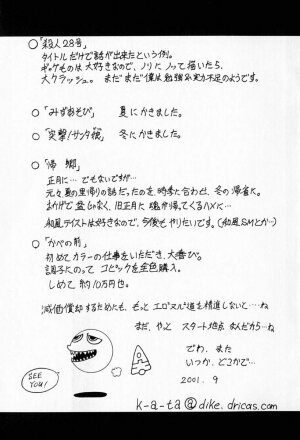 ○「殺人28号」
タイトルだけで話が出来たという例。
ギャグものは大好きなので、ノリにノって描いたら、
大クラッシュ。まだまだ僕は勉強&実力不足のようです。
○「みずあそび」 夏にかきました。
○「突撃!サンタ娘」 冬にかきました。
○「帰郷」
正月に…でもないですが…
元々夏の里帰りの話だったのを、時季に合わせ、冬の帰省に。
おかげで盆じゃなく、旧正月に魂が帰ってくるハメに…
和風テイストは好きなので、今後もやりたいです。(和風SMとか…)
○「かべの前」
初めてカラーの仕事をいただき、大喜び。
調子にのってコピックを全色購入。
しめて約10万円也。
減価償却するためにも、もっとエロマンガ道を精進しないと…ね
まだ、やっとスタート地点なんだから…ね
でわ、また
いつか、どこかで…
2001. 9
SEE YOU!
k-a-ta@dike.dricas.com